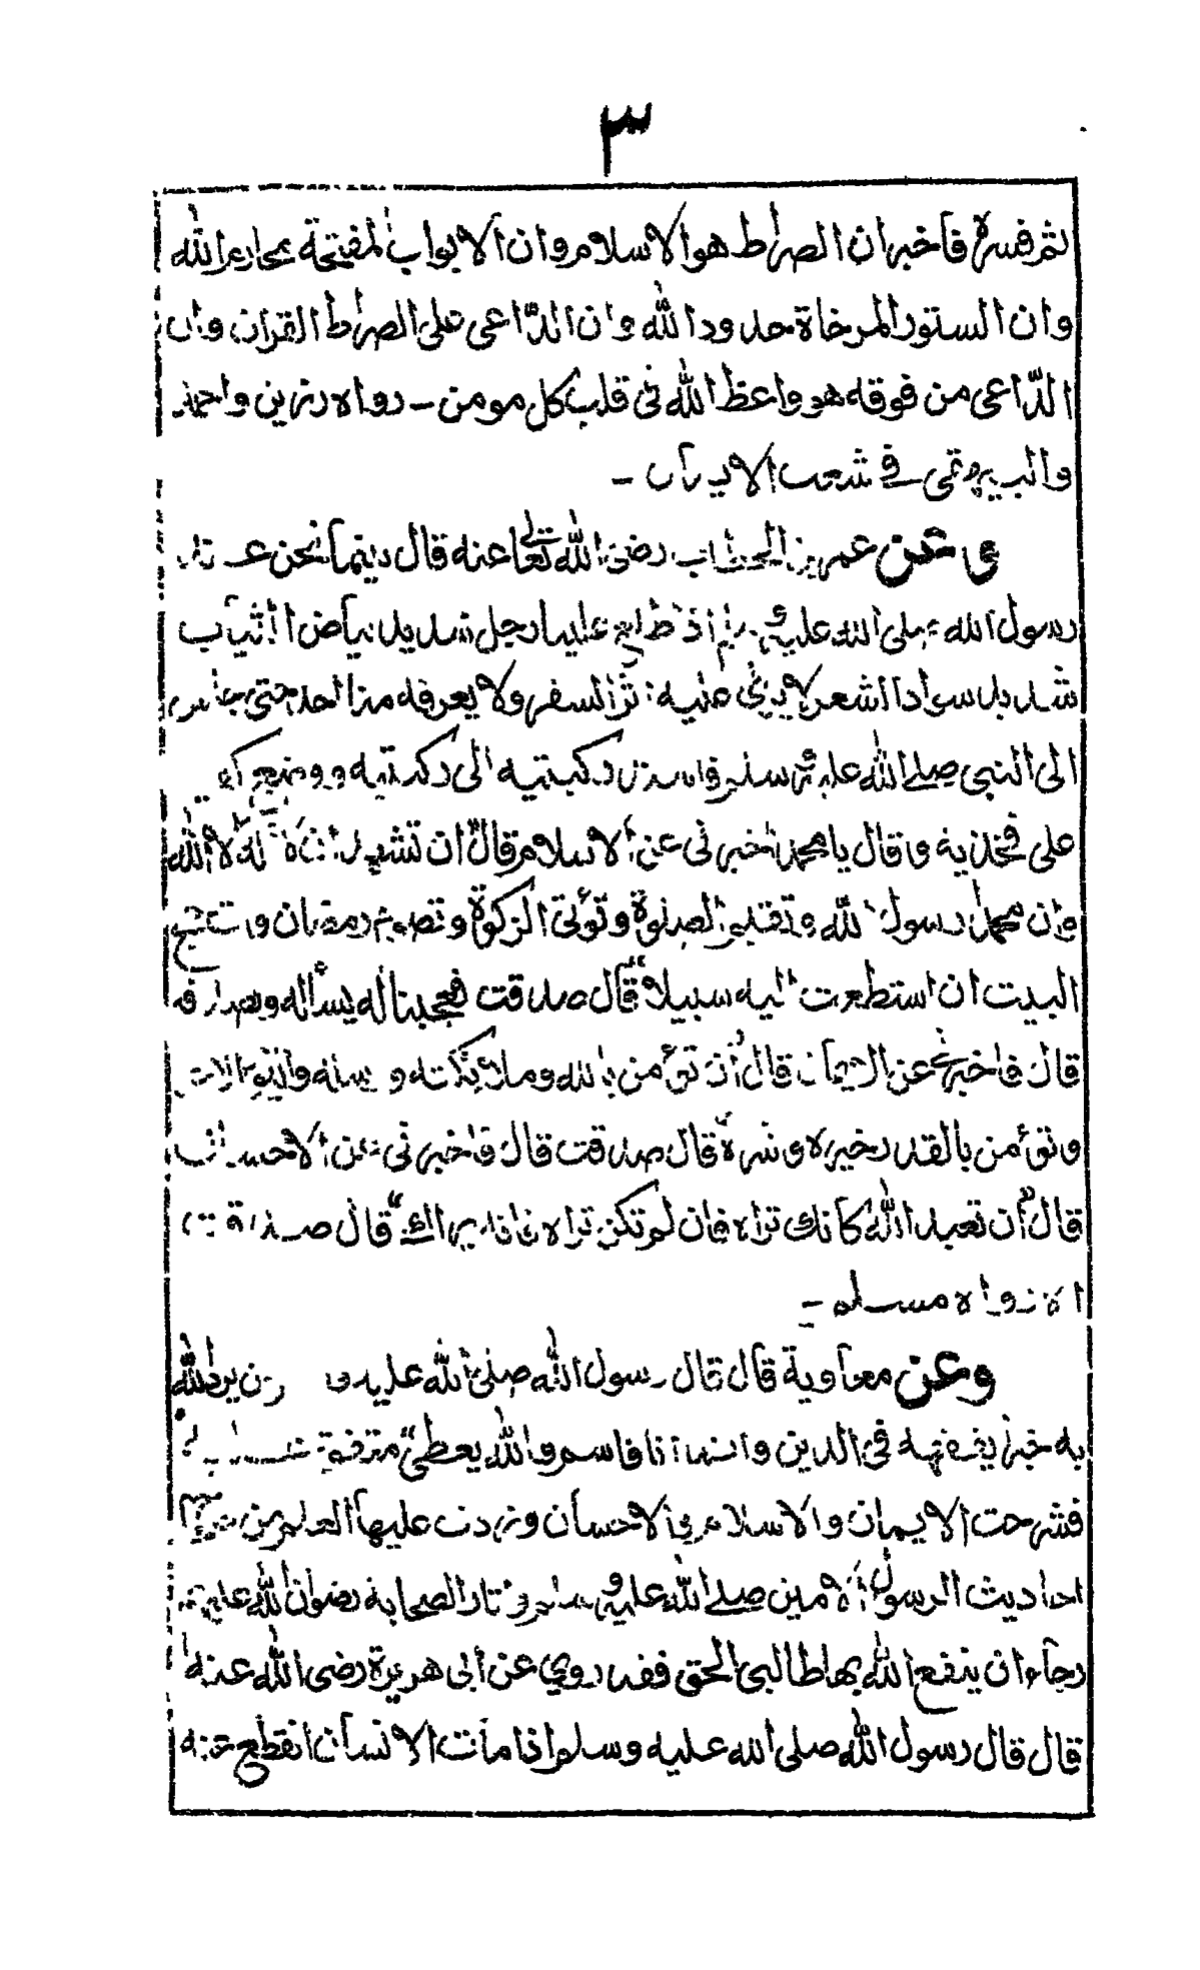 ٣
ثم فسره فاخبر ان الصراط هو الاسلام وان الابواب المفتحة محارم الله
وان الستور المرخاة حدود الله وان الدّاعى على الصراط القران وان
الدّاعى من فوقه هو واعظ الله فى قلب كل مومن - رواه رزين واحمد
والبيهقى فى شعب الايمان -
وعن عمر بن الخطاب رضى الله تعالى عنه قال بينما نحن عند
رسول الله صلى الله عليه وسلم اذ طلع علينا رجل شديد بياض الثياب
شديد سواد الشعر لا يرى عليه اثر السفر ولا يعرفه منا احد حتى جلس
الى النبى صلى الله عليه وسلم فاسند ركبتيه الى ركبتيه ووضع كفيه
على فخذيه وقال يا محمد اخبرنى عن الاسلام قال ان تشهد ان لا اله الا الله
وان محمدا رسول الله وتقيم الصلوة وتؤتى الزكوة وتصوم رمضان وتحج
البيت ان استطعت اليه سبيلا قال صدقت فعجبنا له يسأله ويصدقه
قال فاخبرنى عن الايمان قال ان تؤمن بالله وملائكته
وتؤمن بالقدر خيره وشره قال صدقت قال فاخبرنى عن الاحسان
قال ان تعبد الله كانك تراه فان لم تكن تراه فانه يراك قال صدقت
رواه مسلم -
وعن معاوية قال قال رسول الله صلى الله عليه من يرد الله
به خيرا يفقهه فى الدين وانما انا قاسم والله يعطى متفق
فشرحت الايمان والاسلام والاحسان وزدت عليها العلم من
احاديث الرسول الامين صلى الله عليه وسلم واثار الصحابة رضوان الله عليهم
رجاء ان ينفع الله بها طالبى الحق فقد روى عن ابى هريرة رضى الله عنه
قال قال رسول الله صلى الله عليه وسلم اذا مات الانسان انقطع عنه